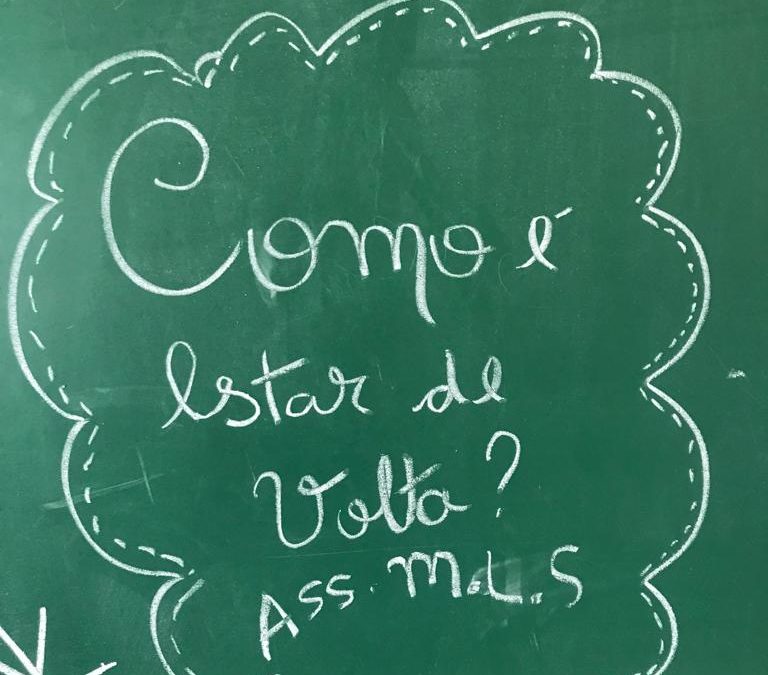 Como é
Estar de
Volta?
Ass. M.L.S